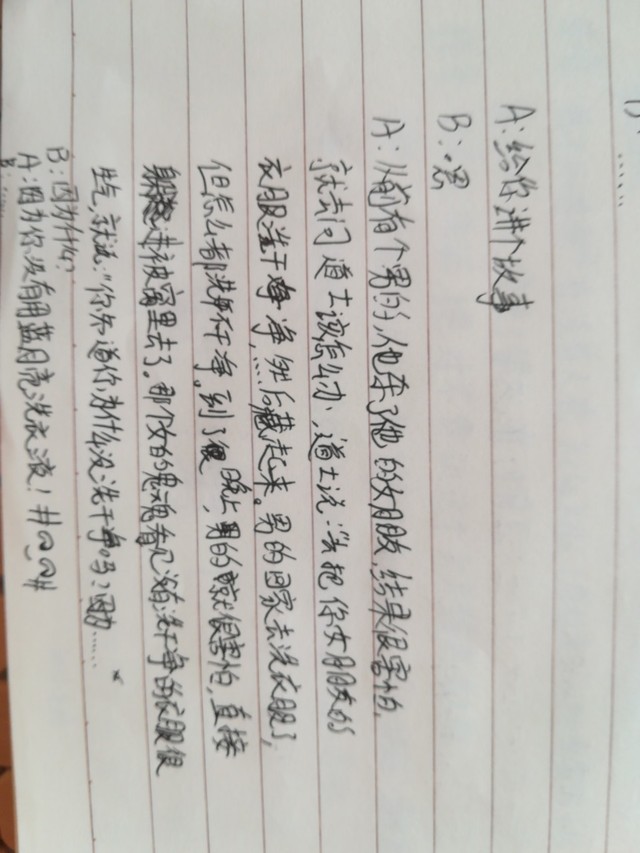 ……
A:给你讲个故事
B:嗯
A:从前有个男的,他杀了他的女朋友,结果很害怕,
就去问道士该怎么办,道士说:“先把你女朋友的
衣服洗干净,然后藏起来。男的回家去洗衣服了,
但怎么都洗不干净。到了晚上,男的就很害怕,直接
进被窝里去了。那个女的鬼魂看见没有洗干净的衣服很
生气,就说:“你知道你为什么没洗干净吗?因为……
B:因为什么?
A:因为你没有用蓝月亮洗衣液!